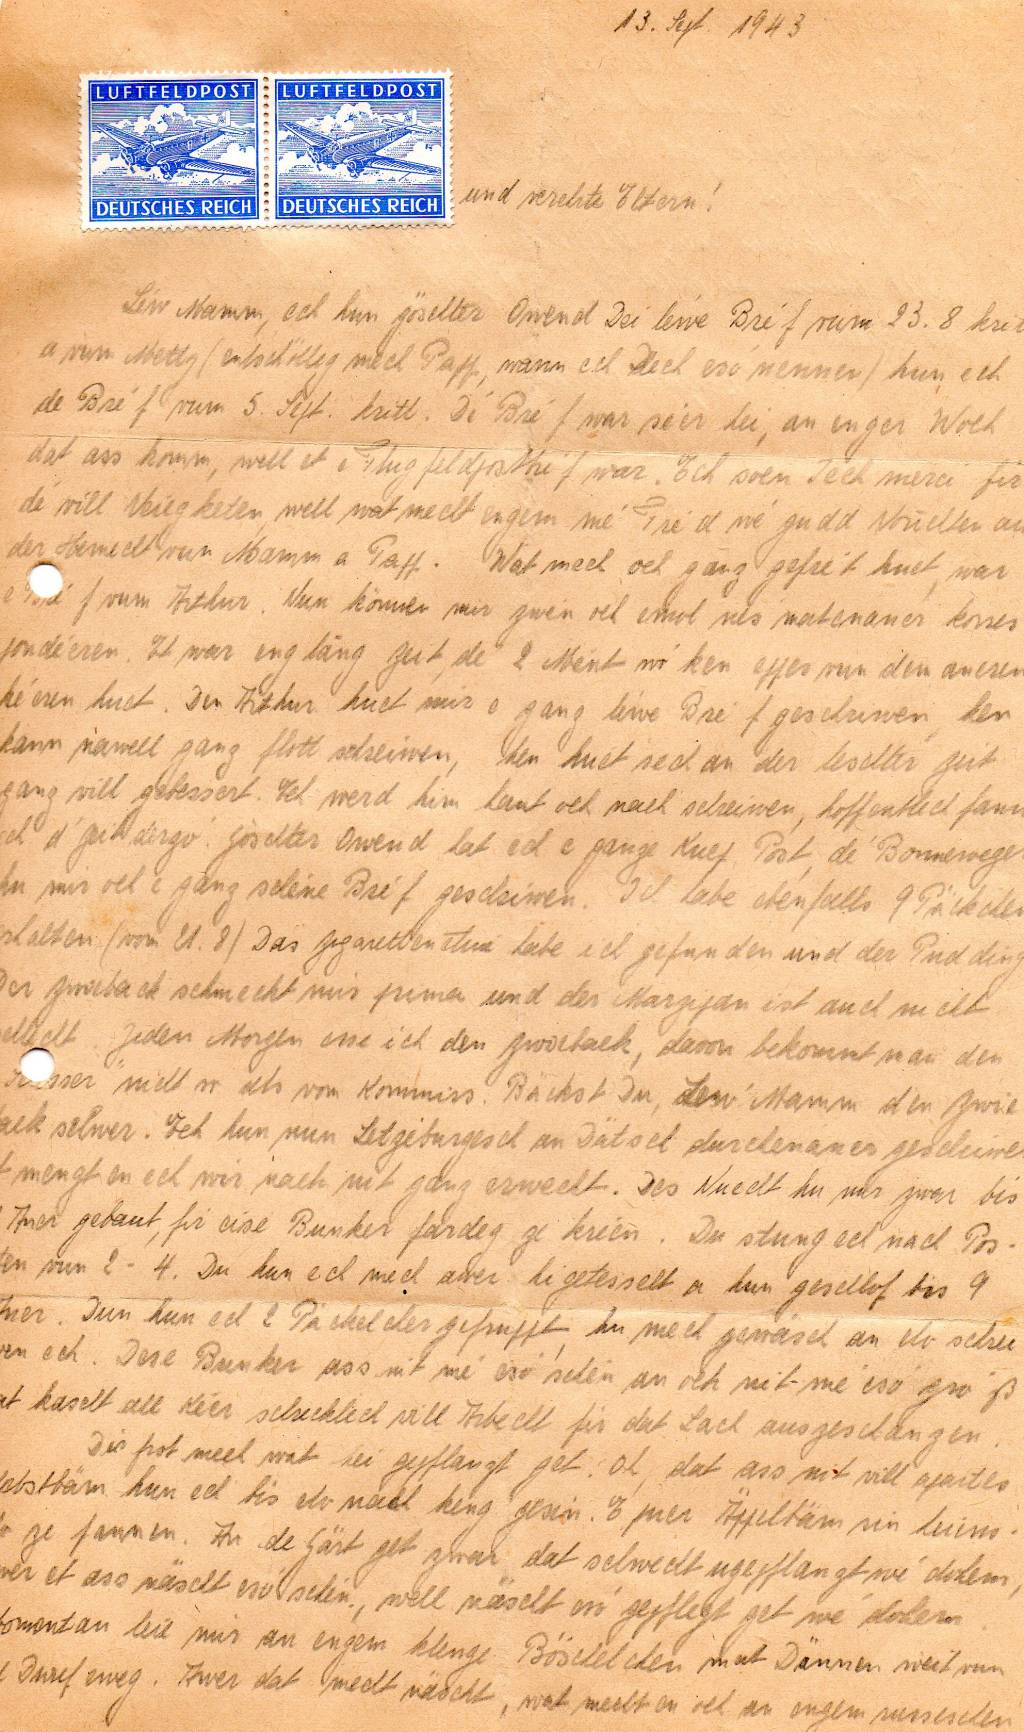 13. Sept. 1943
LUFTFELDPOST LUFTFELDPOST
DEUTSCHES REICH DEUTSCHES REICH
und verehrte Eltern!
Léiw Mamm, ech hun göschter Owend Dei léiwe Bréf vum 23. 8 krit
a vum Metty (entschölleg mech Papp, wann ech Dech esó nennen) hun ech
de Bréf vum 5. Sept. kritt. Dé Bréf war séier hei, an enger Woch
dat ass komm, well et e Flugfeldpostbréf war. Ech soen Iech merci fir
dé vill Neiegketen, well wat mecht engem mé Fréd wé gudd Noriichten aus
der Hemecht vun Mamm a Papp. Wat mech och ganz gefreit huet, war
e Bréf vum Arthur. Nun können mir zwein och emol mis matenaner korres
pondéeren. Et war eng láng Zeit, dé 2 Ment wó ken eppes vun dem aneren
héieren huet. Den Arthur huet mir e ganz léiwe Bréf geschriwen, hen
kann iwwell ganz flott schreiwen, hen huet sech an der leschter Zeit
ganz vill gebessert. Ech werd him haut och nach schreiwen, hoffentlech fannen
ech d'Zeit dergó. Göschter Owend hat ech e ganze Koup Post, dé Bonneweger
hu mir och e ganz schéine Bréf geschriwen. Ich habe ebenfalls 9 Päckchen
erhalten (vom 21. 8) Das Zigarettenetui habe ich gefunden und der Pudding
Der Zwieback schmeckt mir prima und der Marzipan ist auch nicht
schlecht. Jeden Morgen esse ich den Zwieback, davon bekommt man den
nicht so als vom Kommiss. Bäckst Du, Léiw Mamm den Zwie
back selwer. Ech hun nun Letzeburgesch an Dätsch durchenaner geschriwen
t mengt en ech wir nach nit ganz erwecht. Des Nuecht hu mir zwar bis
Auer gebaut, fir eise Bunker fardeg ze kréien. Du stung ech nach Pos-
ten vun 2 - 4. Du hun ech mech awer higetesselt a hun geschlof bis 9
Auer. Dun hun ech 2 Päckelcher gefrupft, hu mech gewäsch an elo schrei
wen ech. Dese Bunker ass nit mé esó schéin an och nit mé esó gróß
et kascht all Kéier schrecklech vill Arbecht fir dat Lach auszeschlangen.
Dir frot mech wat hei geplanzt get. Oh, dat ass nit vill apartes
Uebstbäm hun ech bis elo nach keng gesin. E puer Äppelbäm sin heiens-
do ze fannen. An de Gärt get zwar dat selwecht ugeplanzt wé doheem,
wer et ass näscht esó schéin, well näscht esó geplegt get wé doheem.
Momentan leie mir an engem klenge Böschelchen mat Dännen weit vum
Duref eweg. Awer dat mecht näscht, wat mecht en och an engem russeschen